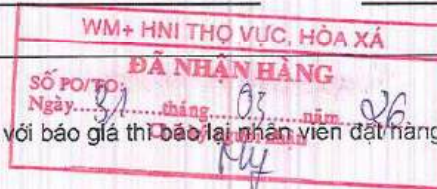 WM+ HNI THỌ VỰC, HÒA XÁ
ĐÃ NHẬN HÀNG
SỐ PO/TO:
Ngày 31 tháng 03 năm 26
với báo giá thì báo lại nhân viên đặt hàng
My